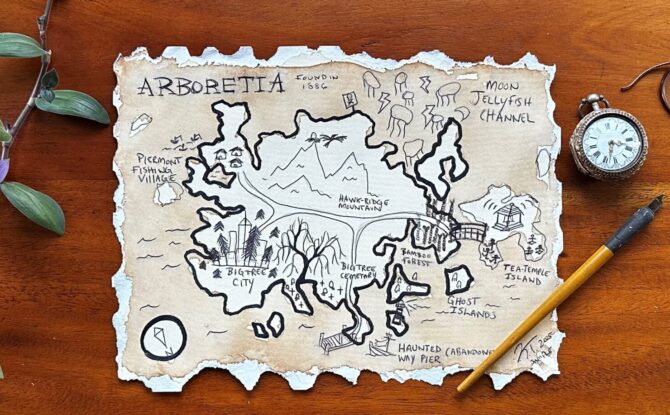 ARBORETIA
FOUND IN
1886
MOON
JELLYFISH
CHANNEL
PIERMONT
FISHING
VILLAGE
HAWK-RIDGE
MOUNTAIN
BIGTREE
CITY
BIGTREE
CEMETARY
BAMBOO
FOREST
TEA-TEMPLE
ISLAND
GHOST
ISLANDS
HAUNTED (ABANDONE
WAY PIER